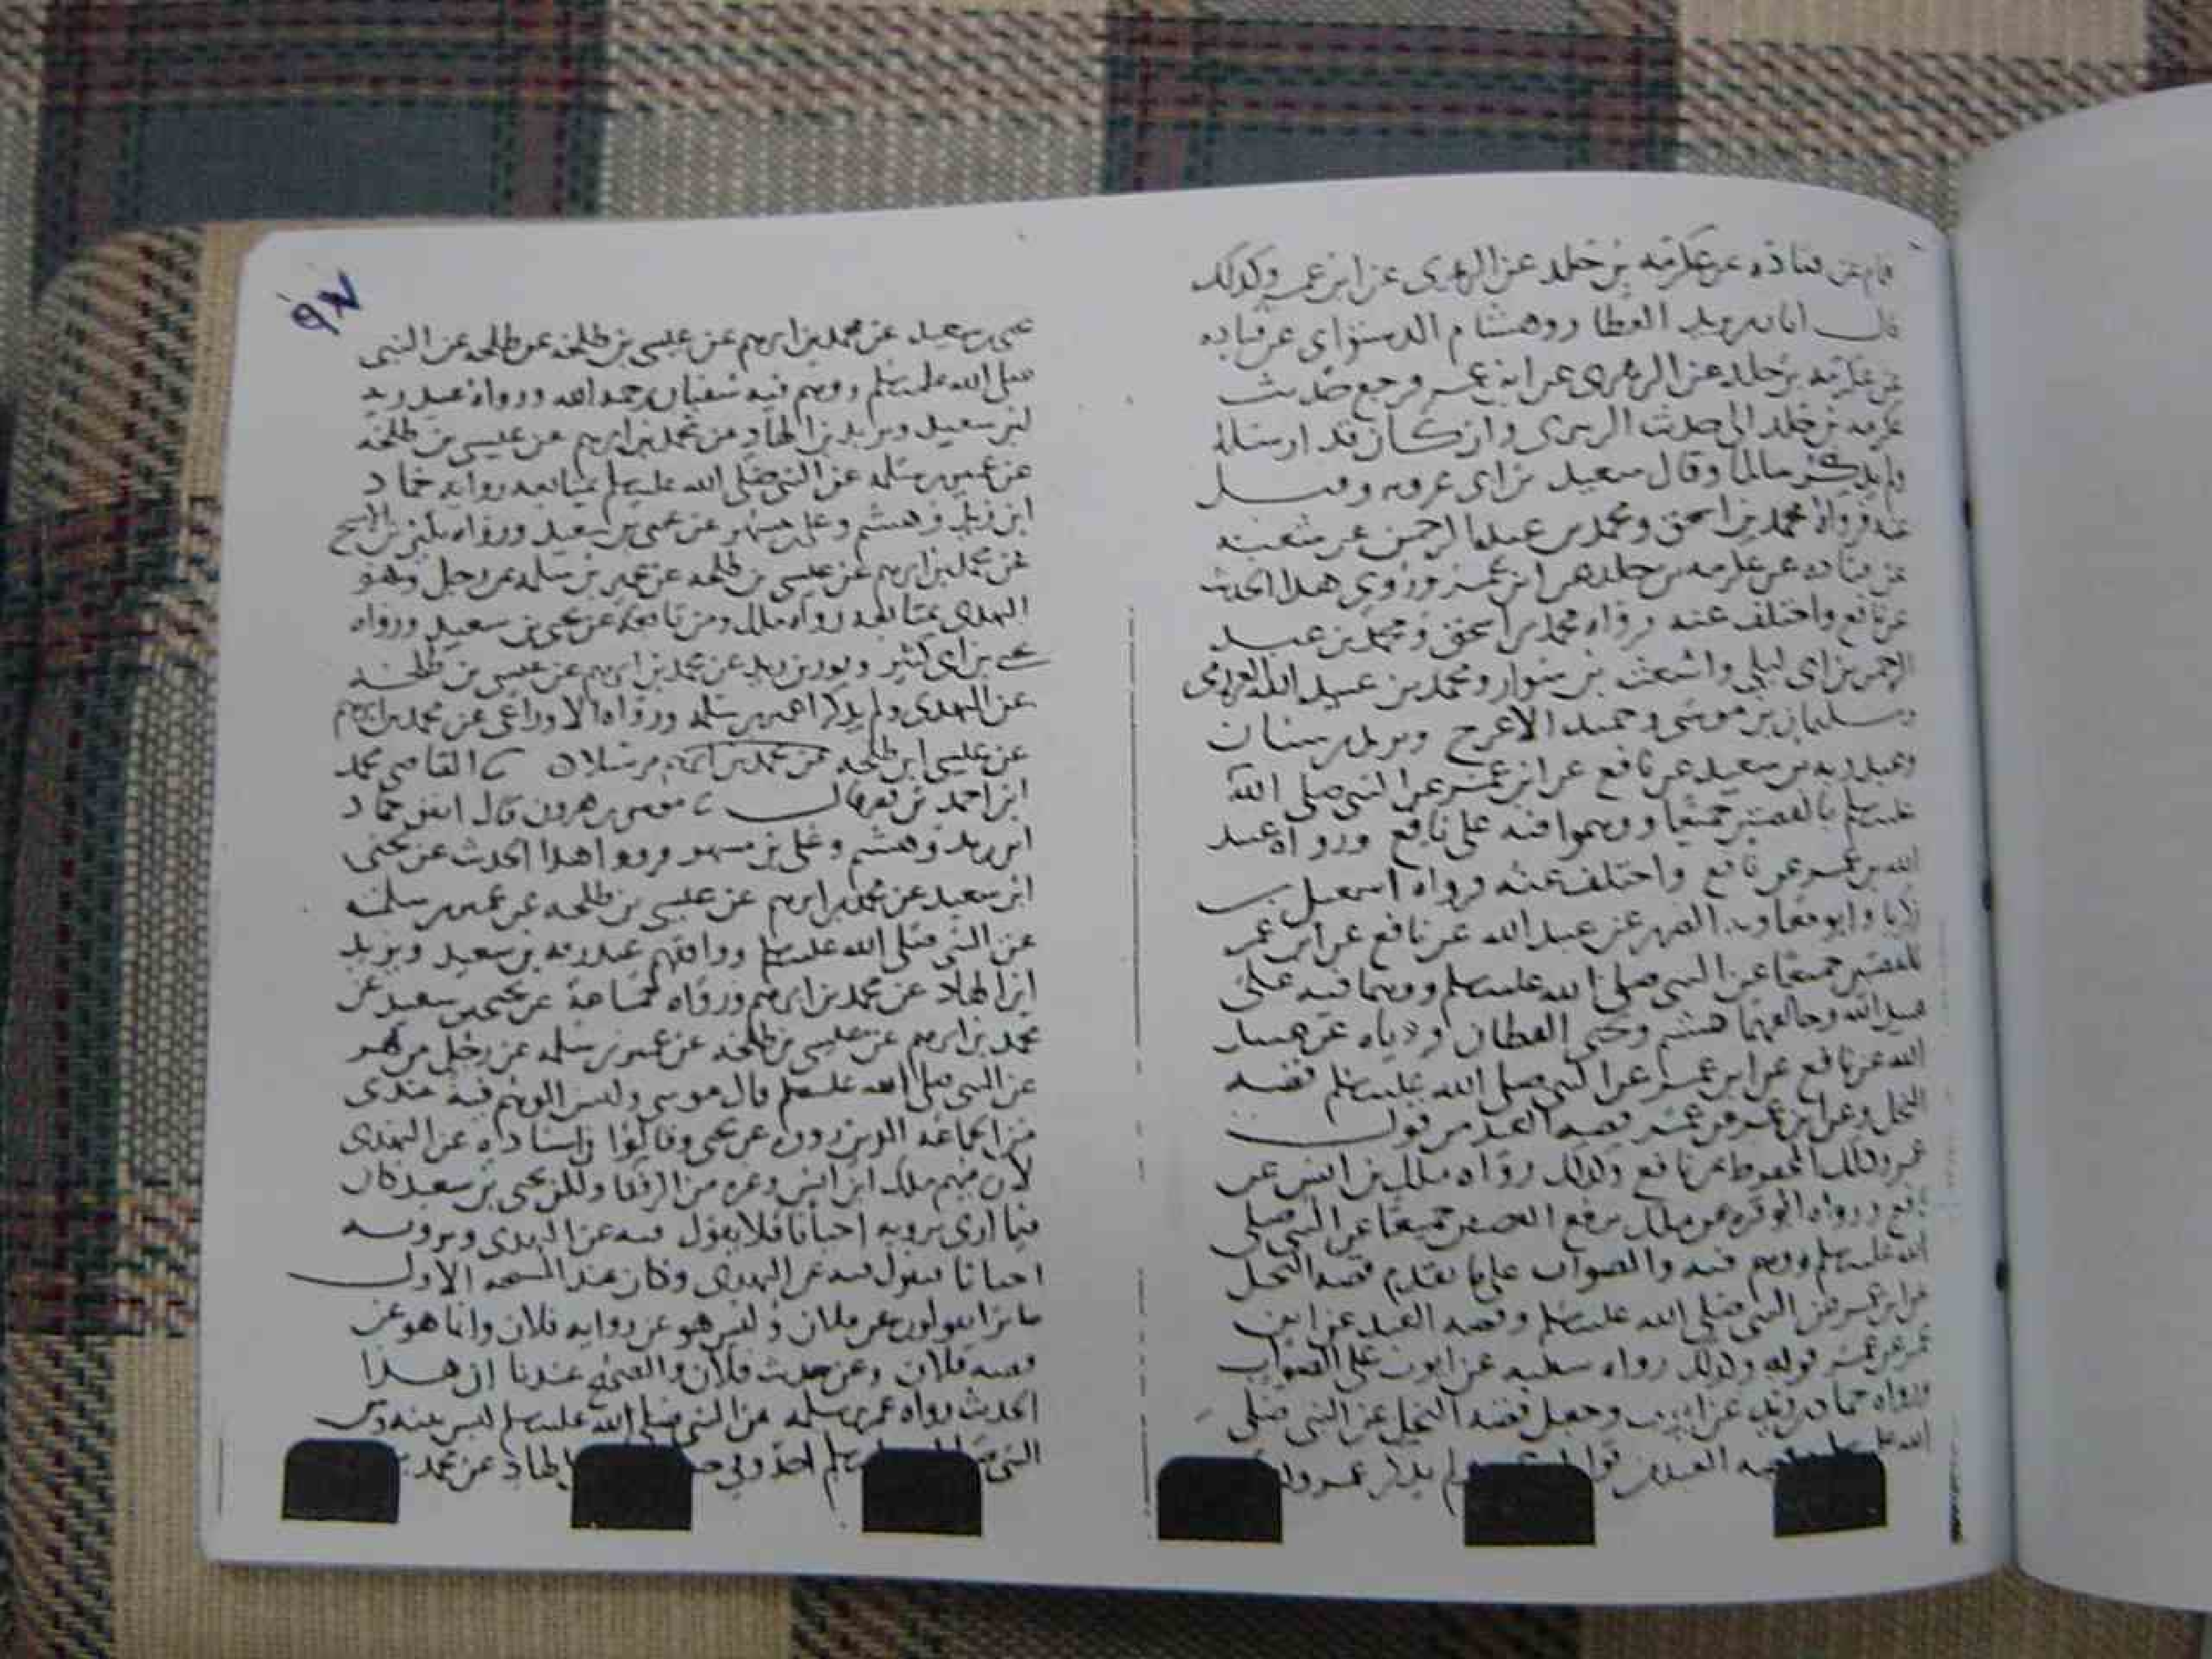 عن قتاده عن عكرمه بن خلد عن الزهرى عن ابن عمر وكذلك
قال ابان بن يزيد العطار وهشام الدستواى عن قتاده
عن عكرمه بن خلد عن الزهرى عن ابن عمر فرجع حديث
عكرمه بن خلد الى حديث الزهرى وان كان قد ارسله
ولم يذكر سالما وقال سعيد بن ابى عروبه وقيل
عنه فرواه محمد بن اسحق ومحمد بن عبد الرحمن عن شعبه
عن قتاده عن عكرمه بن خلد عن ابن عمر وروى هذا الحديث
عن نافع واختلف عنه فرواه محمد بن اسحق ومحمد بن عبد
الرحمن بن ابى ليلى واشعث بن سوار ومحمد بن عبيد الله العرزمى
وسليمان بن موسى وحميد الاعرج وبرد بن سنان
وعبد ربه بن سعيد عن نافع عن ابن عمر عن النبى صلى الله
عليه وسلم بالقصتين جميعا ووهموا فيه على نافع ورواه عبيد
الله بن عمر عن نافع واختلف عنه فرواه اسمعيل بن
زكريا وابو معاويه الضرير عن عبيد الله عن نافع عن ابن عمر
بالقصتين جميعا عن النبى صلى الله عليه وسلم ووهما فيه على
عبيد الله وخالفهما هشيم ويحيى القطان روياه عن عبيد
الله عن نافع عن ابن عمر عن النبى صلى الله عليه وسلم قصه
النخل وعن ابن عمر عن عمر قصه العبد من قول
عمر وذلك المحفوظ عن نافع وكذلك رواه ملك بن انس عن
نافع ورواه ابو قره عن ملك برفع القصتين جميعا عن النبى صلى
الله عليه وسلم ووهم فيه والصواب على ما تقدم قصه النخل
عن ابن عمر عن النبى صلى الله عليه وسلم وقصه العبد عن ابن
عمر عن عمر قوله وكذلك رواه عن ايوب على الصواب
ورواه حماد بن زيد عن ايوب وجعل قصه النخل عن النبى صلى
الله قصه العبد من ولم يذكر عمر
٩٧
يحيى بن سعيد عن محمد بن ابرهيم عن عيسى بن طلحه عن طلحه عن النبى
صلى الله عليه وسلم ووهم فيه سفيان رحمه الله ورواه عبد ربه
ابن سعيد ويزيد بن الهاد عن محمد بن ابرهيم عن عيسى بن طلحه
عن عمير بن سلمه عن النبى صلى الله عليه وسلم بمتابعه روايه حماد
ابن زيد وهشيم وعلى بن مسهر عن يحيى بن سعيد ورواه بكير بن الاشج
عن محمد بن ابرهيم عن عيسى بن طلحه عن عمير بن سلمه عن رجل وهو
البهزى بمتابعه رواه ملك ومن تابعه عن يحيى بن سعيد ورواه
يحيى بن ابى كثير وثور بن يزيد عن محمد بن ابرهيم عن عيسى بن طلحه
عن البهزى ولم يذكرا عمير بن سلمه ورواه الاوزاعى عن محمد بن ابرهيم
عن عيسى ابن طلحه عن محمد بن ابرهيم مرسلا القاضى محمد
ابن احمد بن نصر قال موسى بن هرون قال اتفق حماد
ابن زيد وهشيم وعلى بن مسهر فرووا هذا الحديث عن يحيى
ابن سعيد عن محمد بن ابرهيم عن عيسى بن طلحه عن عمير بن سلمه
عن النبى صلى الله عليه وسلم ووافقهم عبد ربه بن سعيد ويزيد
ابن الهاد عن محمد بن ابرهيم ورواه جماعه عن يحيى بن سعيد عن
محمد بن ابرهيم عن عيسى بن طلحه عن عمير بن سلمه عن رجل من بهز
عن النبى صلى الله عليه وسلم قال موسى وليس الوهم فيه عندى
من الجماعه الذين رووه عن يحيى وقالوا فى اسناده عن البهزى
لان فيهم ملك ابن انس وغيره من الرفعا ولكن يحيى بن سعيد كان
فيما ارى يرويه احيانا فلا يقول فيه عن البهزى ويرويه
احيانا فيقول فيه عن البهزى وكان عند المشيخه الاول
جائزا يقولون عن فلان وليس هو عن روايه فلان وانما هو عن
قصه فلان وعن حديث فلان والصحيح عندنا ان هذا
الحديث رواه عمير بن سلمه عن النبى صلى الله عليه وسلم ليس بينه وبين
النبى وسلم احد وفى الهاد عن محمد